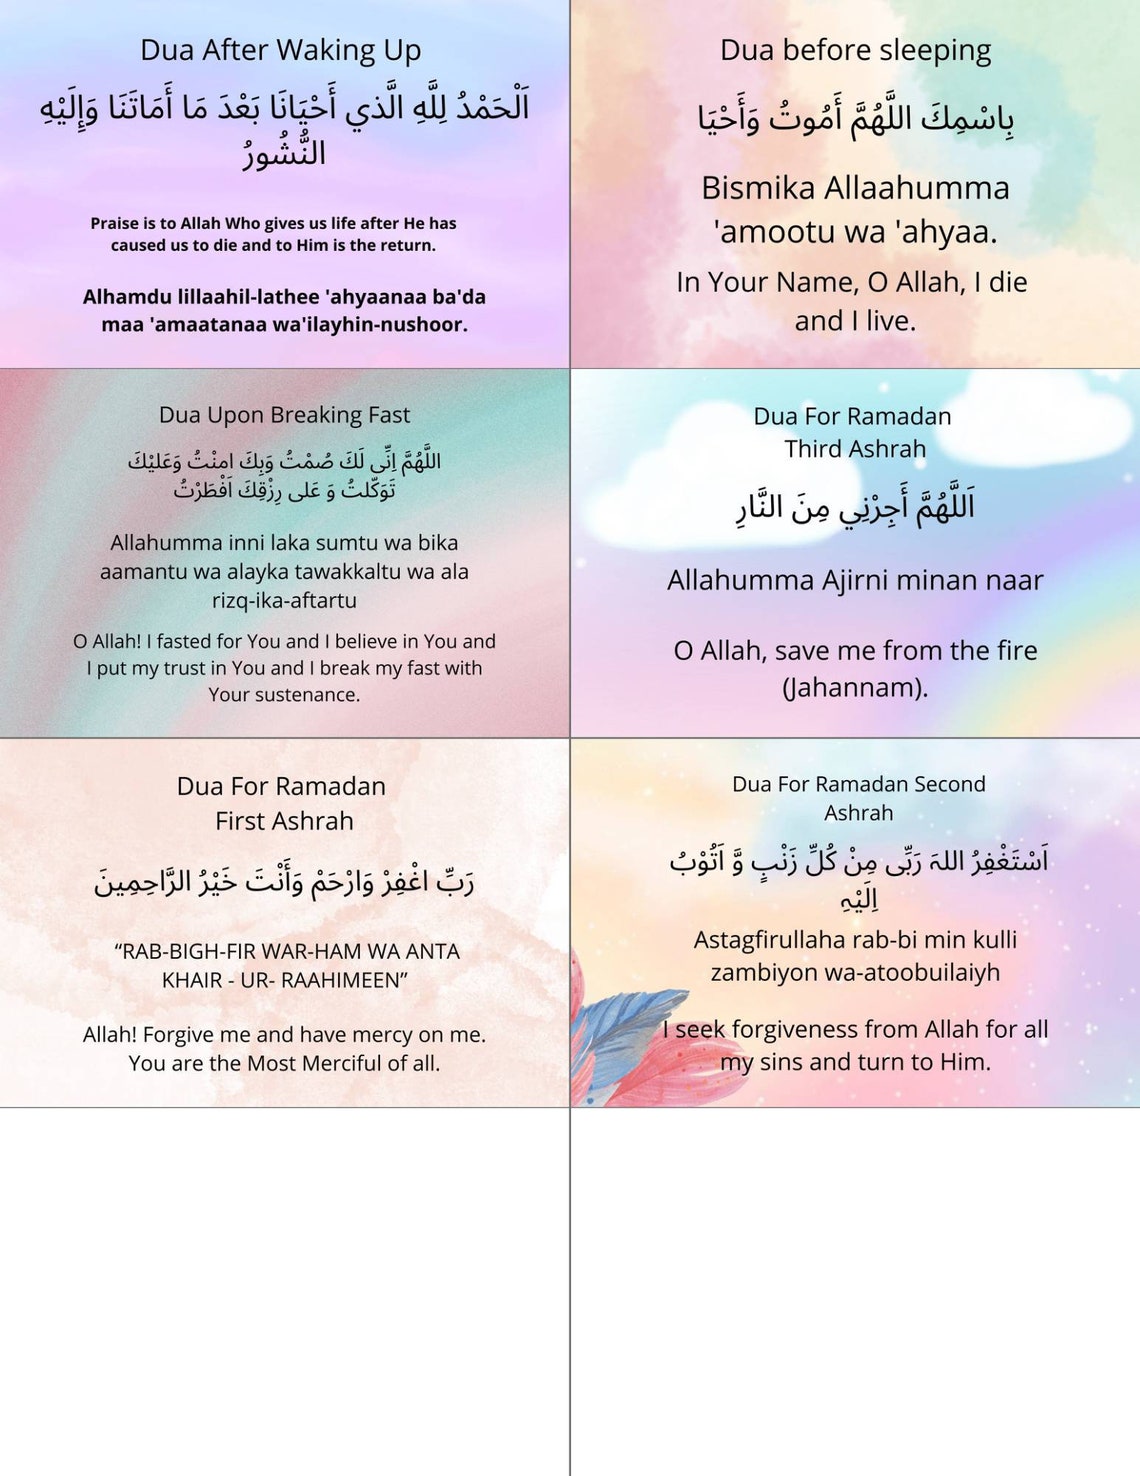 Dua After Waking Up
اَلْحَمْدُ لِلَّهِ الَّذي أَحْيَانَا بَعْدَ مَا أَمَاتَنَا وَإِلَيْهِ
النُّشُورُ
Praise is to Allah Who gives us life after He has
caused us to die and to Him is the return.
Alhamdu lillaahil-lathee 'ahyaanaa ba'da
maa 'amaatanaa wa'ilayhin-nushoor.
Dua before sleeping
بِاسْمِكَ اللَّهُمَّ أَمُوتُ وَأَحْيَا
Bismika Allaahumma
'amootu wa 'ahyaa.
In Your Name, O Allah, I die
and I live.
Dua Upon Breaking Fast
اللَّهُمَّ اِنِّى لَكَ صُمْتُ وَبِكَ امنْتُ وَعَليْكَ
تَوَكّلتُ وَ عَلى رِزْقِكَ اَفْطَرْتُ
Allahumma inni laka sumtu wa bika
aamantu wa alayka tawakkaltu wa ala
rizq-ika-aftartu
O Allah! I fasted for You and I believe in You and
I put my trust in You and I break my fast with
Your sustenance.
Dua For Ramadan
Third Ashrah
اَللَّهُمَّ أَجِرْنِي مِنَ النَّارِ
Allahumma Ajirni minan naar
O Allah, save me from the fire
(Jahannam).
Dua For Ramadan
First Ashrah
رَبِّ اغْفِرْ وَارْحَمْ وَأَنْتَ خَيْرُ الرَّاحِمِينَ
“RAB-BIGH-FIR WAR-HAM WA ANTA
KHAIR - UR- RAAHIMEEN”
Allah! Forgive me and have mercy on me.
You are the Most Merciful of all.
Dua For Ramadan Second
Ashrah
اَسْتَغْفِرُ اللہَ رَبِّی مِنْ کُلِّ زَنْبٍ وَّ اَتُوْبُ
اِلَیْہِ
Astagfirullaha rab-bi min kulli
zambiyon wa-atoobuilaiyh
I seek forgiveness from Allah for all
my sins and turn to Him.